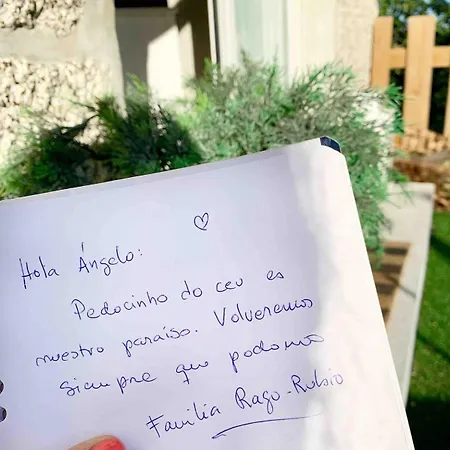 Hola Ángelo:
Pedocinho do ceu es
nuestro paraíso. Volveremos
siempre que podamos
Familia Rago-Rubio